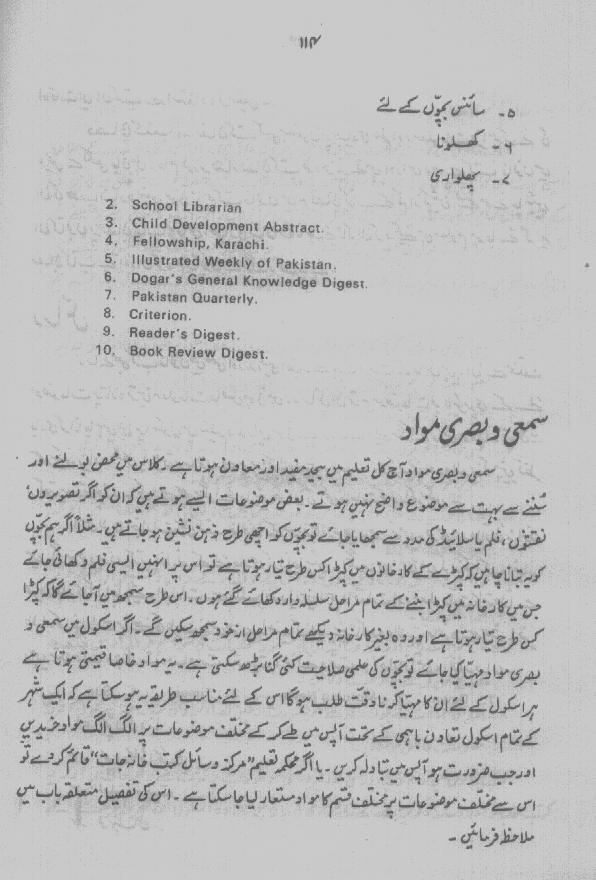 ۱۱۴
۵۔ سائنس بچوّں کے لئے
۶۔ کھلونا
۷۔ پھلواری
2. School Librarian
3. Child Development Abstract.
4. Fellowship, Karachi.
5. Illustrated Weekly of Pakistan.
6. Dogar's General Knowledge Digest.
7. Pakistan Quarterly.
8. Criterion.
9. Reader's Digest.
10. Book Review Digest.
سمعی و بصری مواد
سمعی و بصری مواد آج کل تعلیم میں بیحد مفید اور معاون ہوتا ہے۔ کلاس میں محض بولنے اور
سُننے سے بہت سے موضوع واضح نہیں ہوتے۔ بعض موضوعات ایسے ہوتے ہیں کہ ان کو اگر تصویروں،
نقشوں، فلم یا سلائیڈ کی مدد سے سمجھایا جائے تو بچوّں کو اچھی طرح ذہن نشین ہو جاتے ہیں۔ مثلاً اگر ہم بچوّں
کو یہ بتانا چاہیں کہ کپڑے کے کارخانوں میں کپڑا کس طرح تیار ہوتا ہے تو اس پر انہیں ایسی فلم دکھائی جائے
جن میں کارخانہ میں کپڑا بننے کے تمام مراحل سلسلہ وار دکھائے گئے ہوں۔ اس طرح سمجھ میں آجائے گا کہ کپڑا
کس طرح تیار ہوتا ہے اور وہ بغیر کارخانہ دیکھے تمام مراحل از خود سمجھ سکیں گے۔ اگر اسکول میں سمعی و
بصری مواد مہیّا کیا جائے تو بچوّں کی علمی صلاحیت کئی گنا بڑھ سکتی ہے۔ یہ مواد خاصا قیمتی ہوتا ہے
ہر اسکول کے لئے ان کا مہیّا کرنا دقّت طلب ہوگا اس کے لئے مناسب طریقہ یہ ہو سکتا ہے کہ ایک شہر
کے تمام اسکول تعاون باہمی کے تحت آپس میں طے کر کے مختلف موضوعات پر الگ الگ مواد خریدیں
اور جب ضرورت ہو آپس میں تبادلہ کریں۔ یا اگر محکمہ تعلیم "مرکز وسائل کتب خانہ جات" قائم کر دے تو
اس سے مختلف موضوعات پر مختلف قسم کا مواد مستعار لیا جا سکتا ہے۔ اس کی تفصیل متعلقہ باب میں
ملاحظہ فرمائیں۔